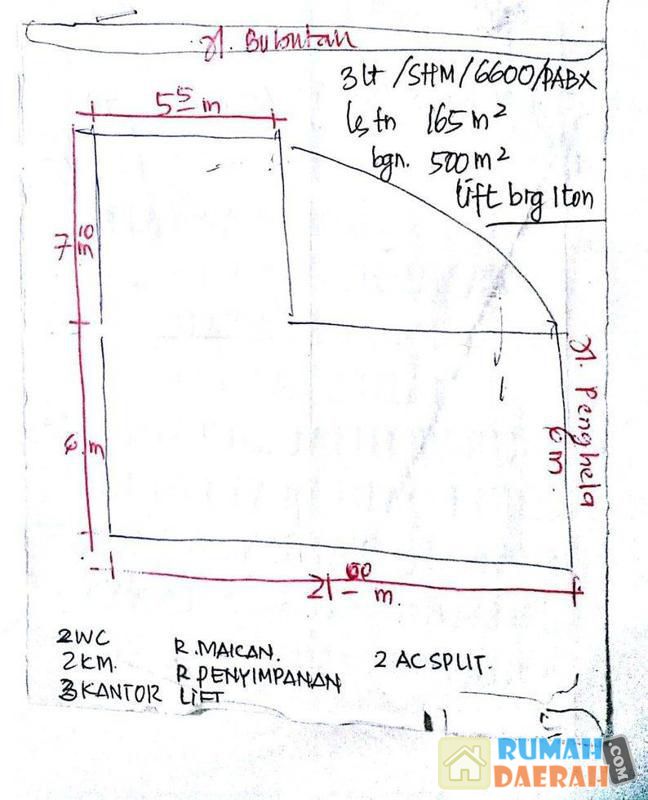 Jl. Bubutan
3 lt / SHM / 6600 / PABX
ls tn 165 m²
bgn. 500 m²
lift brg 1 ton
5 5 m
7 10 m
6 m
6 m
Jl. Penghela
21 00 m.
2 WC
2 KM.
3 KANTOR
R. MAICAN.
R PENYIMPANAN
LIFT
2 AC SPLIT.
RUMAH
DAERAH
.COM